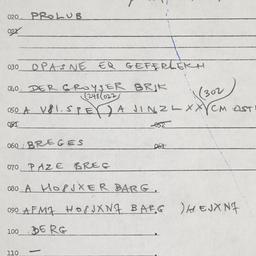 020 PROLUB
021
030 OPASNE EQ GEFERLEKH
040 DER GROYSER BRIK
(241(022) (302
050 A VEI.SPE ) A JINZL XX CM
051 052
060 BREGES 061
070 PAZE BREG
080 A HOPJXER BARG.
090 AFM7 HOPJXN7 BARG ) HEJXN7
100 BERG .
110 —